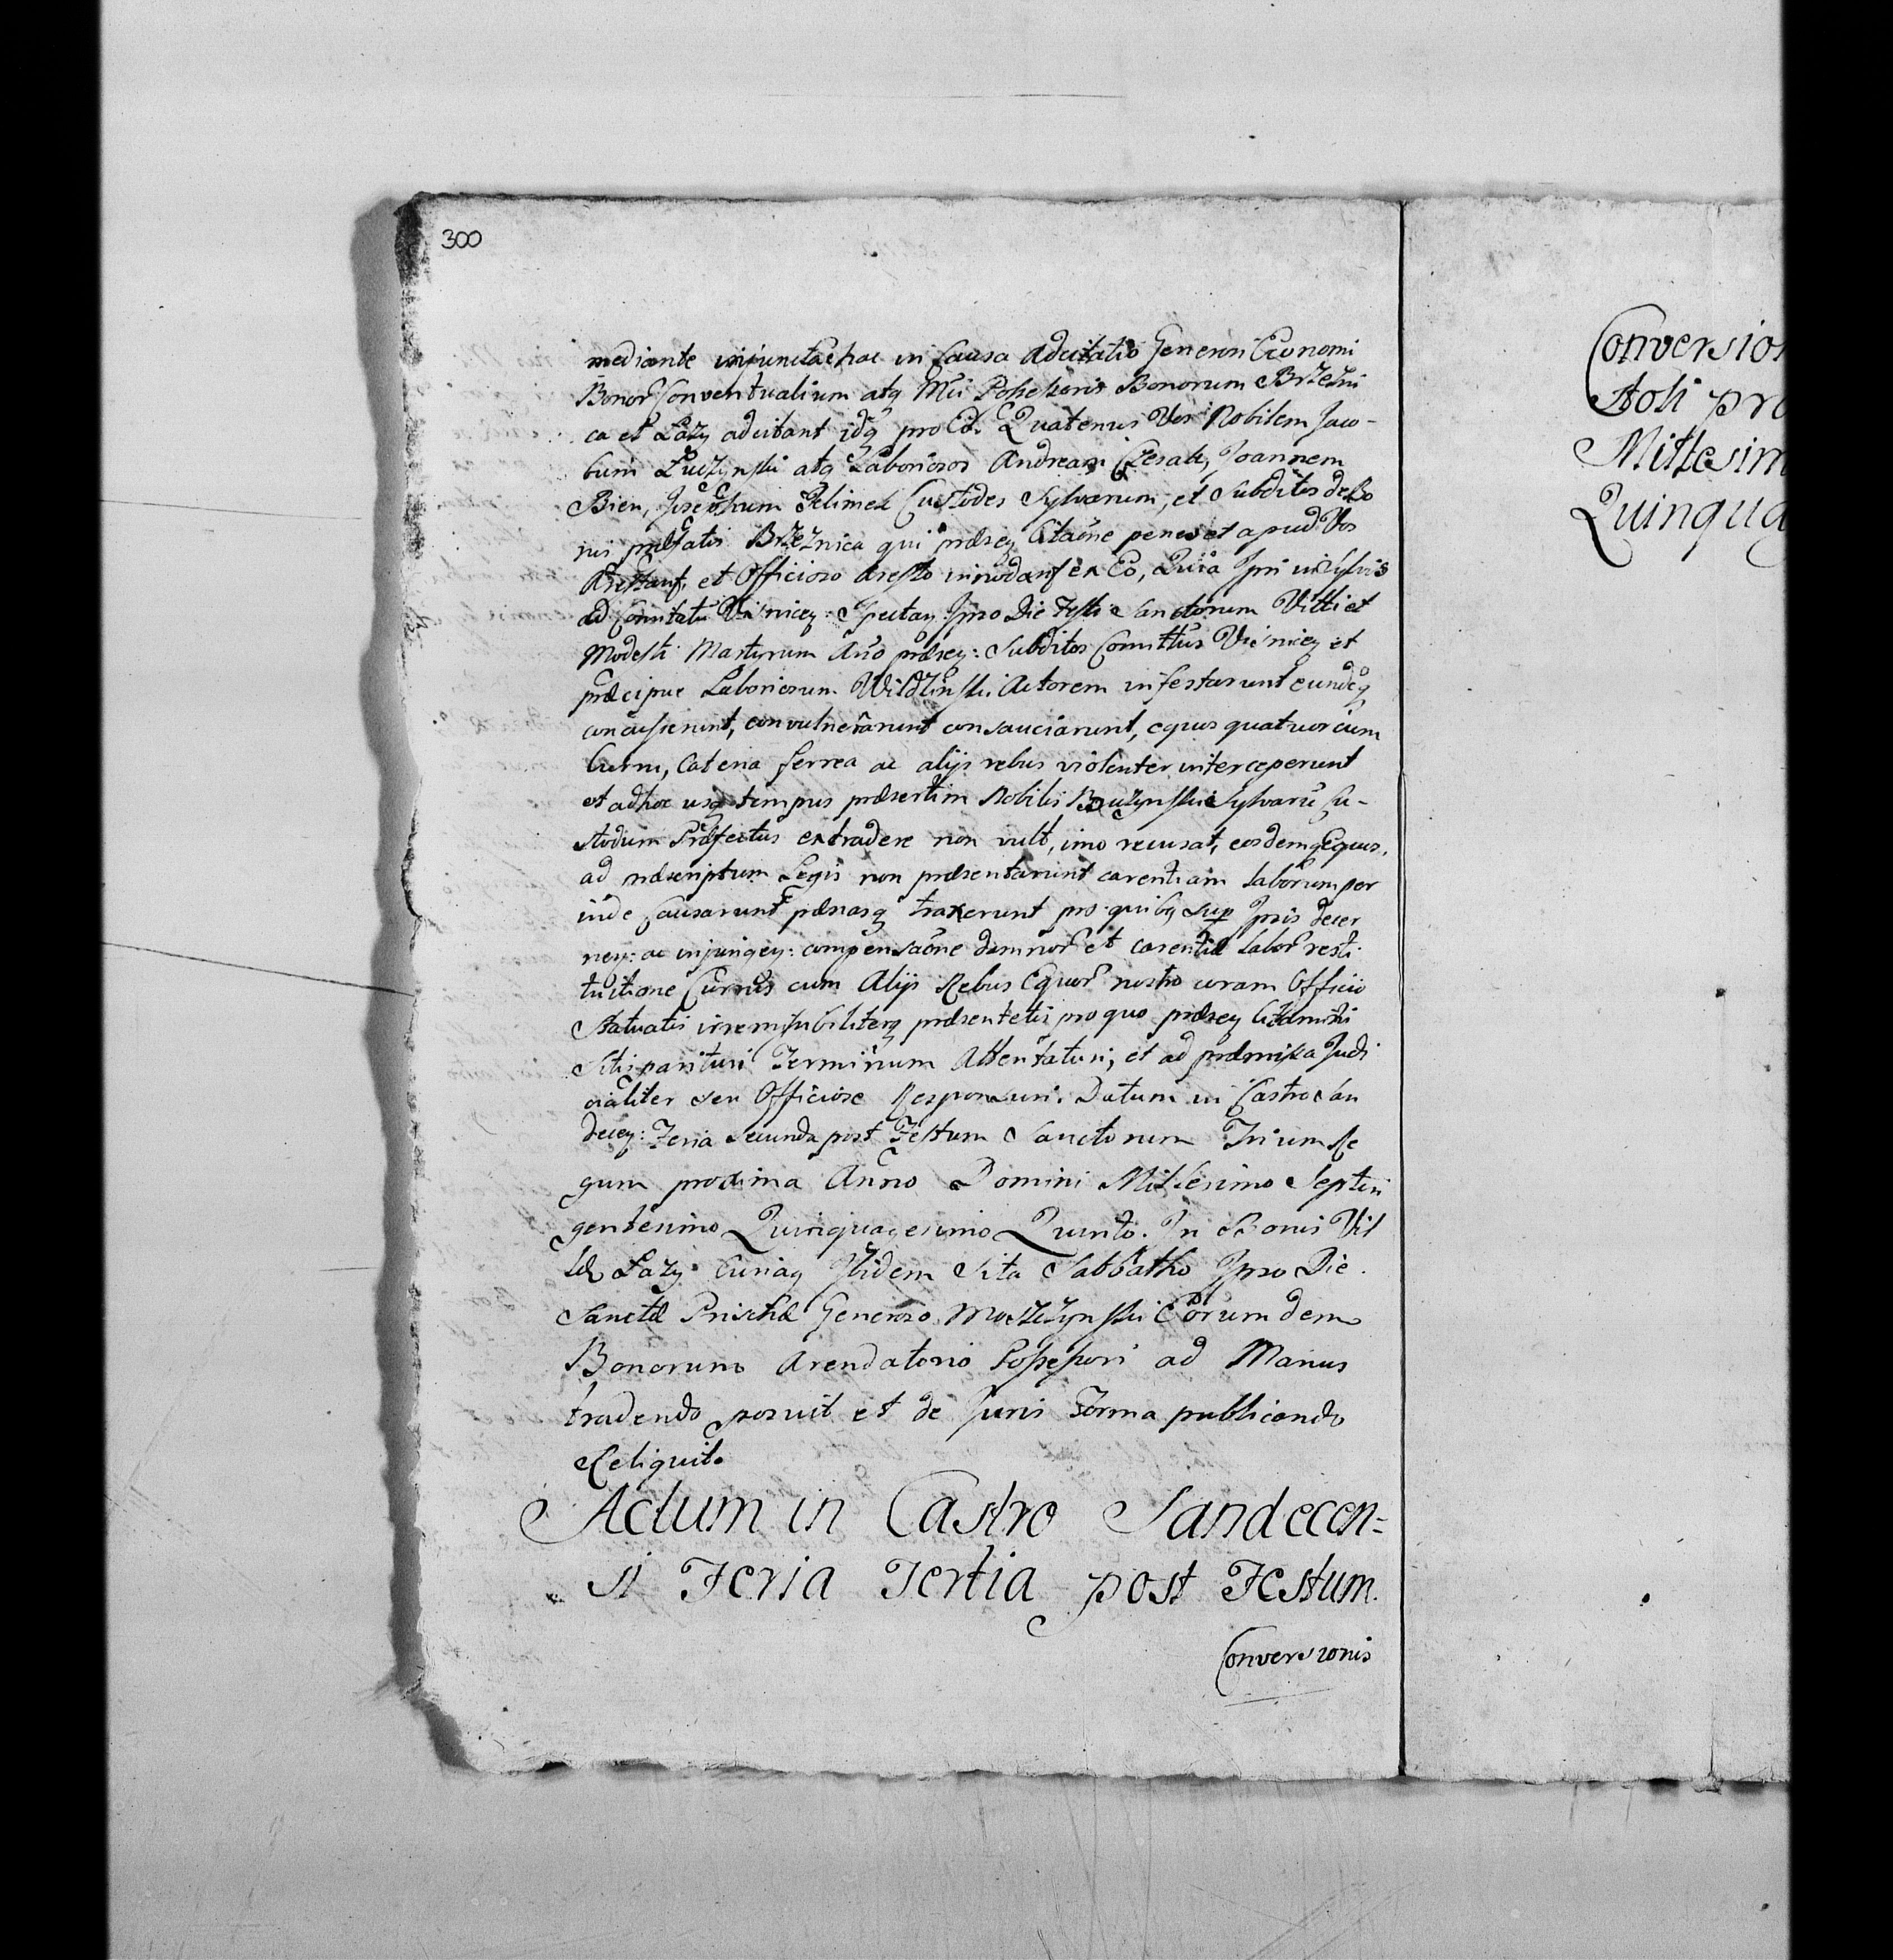 300
mediante injuncta hac in Causa Adcitatio Generosi Economi
Bonor Conventualium atq Mci Possessoris Bonorum Brzezni
ca et Lazy adcitant idq pro Eo. Quatenus Vos Nobilem Jaco-
bum Łuczynski atq Laboriosos Andream Czesak, Joannem
Bien, Josephum Klimek Custodes Sylvarum, et Subditos de Bo
nis præfatis Brzeznica qui præsey Citaõne penes et apud Vos
Arestant, et Officioso Aresto innodant ex Eo, Quia Ipsi in Sylvis
ad Comitatũ Visnicey: Spectan Ipso Die Festi Sanctorum Vitti et
Modesti Martyrum Año præsey: Subditos Comittus Visnicey et
præcipue Laboriosum Wildzinski Actorem infestarunt eundeq
concusserunt, convulnerarunt consauciarunt, equos quatuor cum
Curru, Catena ferrea ac alijs rebus violenter interceperunt
et adhoc usq tempus præsertim Nobilis Buczynski Sylvarũ Cu-
stodum Præfectus extradere non vult, imo recusat, eosdemq Equos,
ad præscriptum Legis non præsentarunt carentiam laborum per
inde Causarunt pænasq traxerunt pro quibq sup Ipsis decer
ney: ac injungey: compensaõne damnor et carentiæ labor resti
tuitione Currus cum Alijs Rebus Equor nostro coram Officio
Statuatis irremissibiliterq præsentetis pro quo præsey Citamini
Sitis parituri Terminum Attentaturi, et ad præmissa Judi
cialiter seu Officiose Responsuri. Datum in Castro San
decey: Feria Secunda post Festum Sanctorum Trium Re
gum proxima Anno Domini Millesimo Septin
gentesimo Quinquagesimo Quinto. In Bonis Vil
læ Lazy Curiaq Ibidem Sita Sabbatho Ipso Die
Sanctæ Priscæ Generoso Moszczynski Eorumdem
Bonorum Arendatorio Possessori ad Manus
tradendo posuit et de Juris Forma publicando
Reliquit.
Actum in Castro Sandecen=
si Feria Tertia post Festum
Conversionis
Conversion
Stoli pro
Millesim
Quinqua